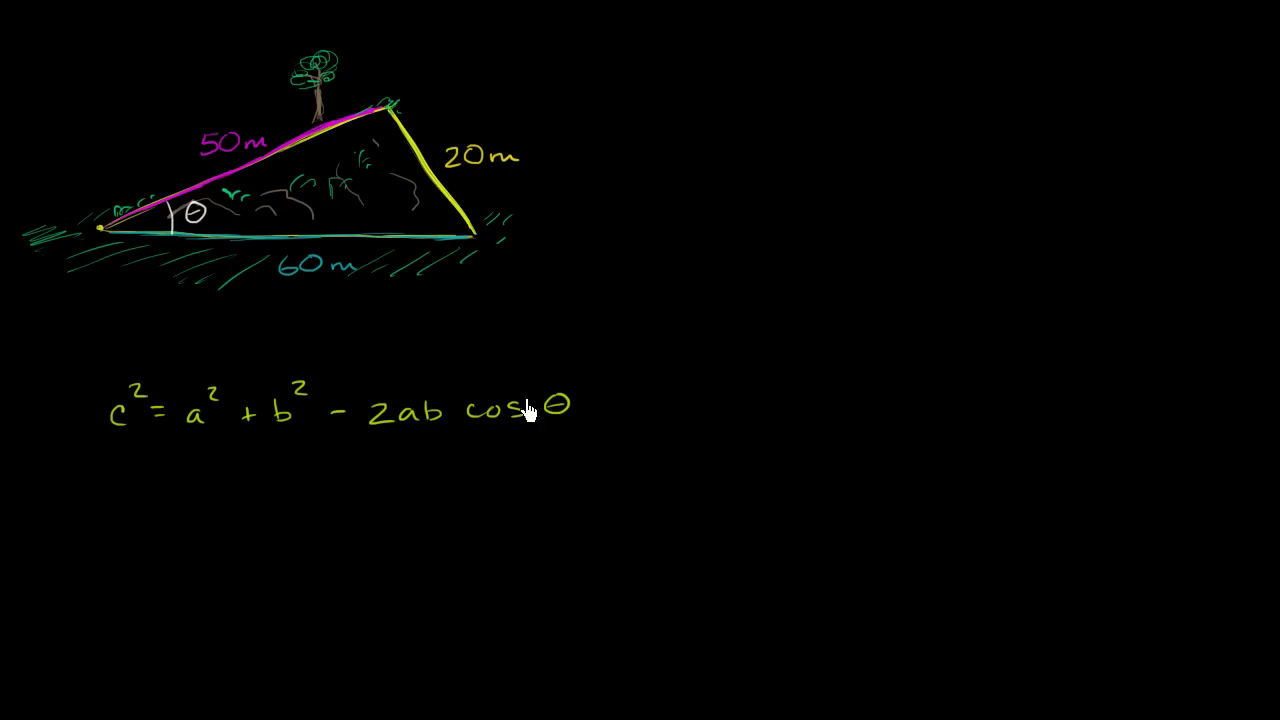 50m
20m
θ
60m
c² = a² + b² - 2ab cos θ